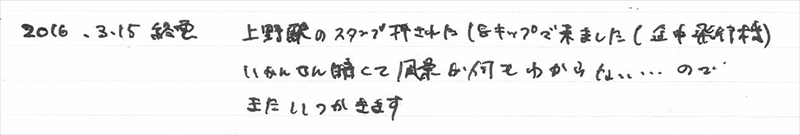 2016.3.15 終電 上野駅のスタンプ押された18キップで来ました(途中発行機)
いかんせん暗くて風景が何もわからない…ので
またいつかきます